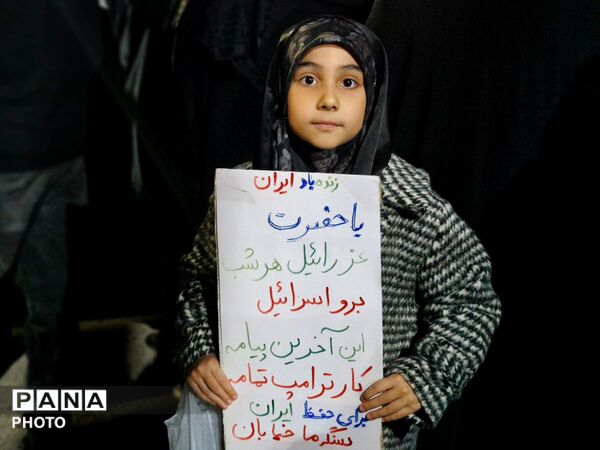 زنده باد ایران
یا حضرت
عزرائیل هر شب
برو اسرائیل
این آخرین پیامه
کار ترامپ تمامه
برای حفظ ایران
سنگر ما خیابان
PANA
PHOTO